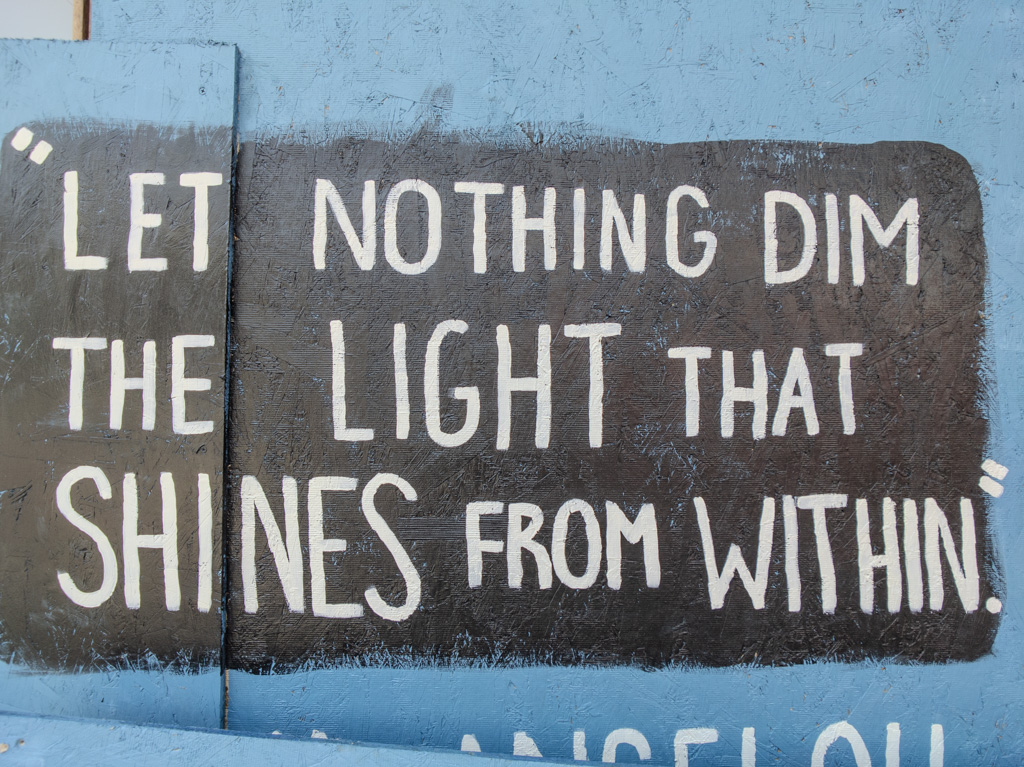 "LET NOTHING DIM
THE LIGHT THAT
SHINES FROM WITHIN."
ANGELOU